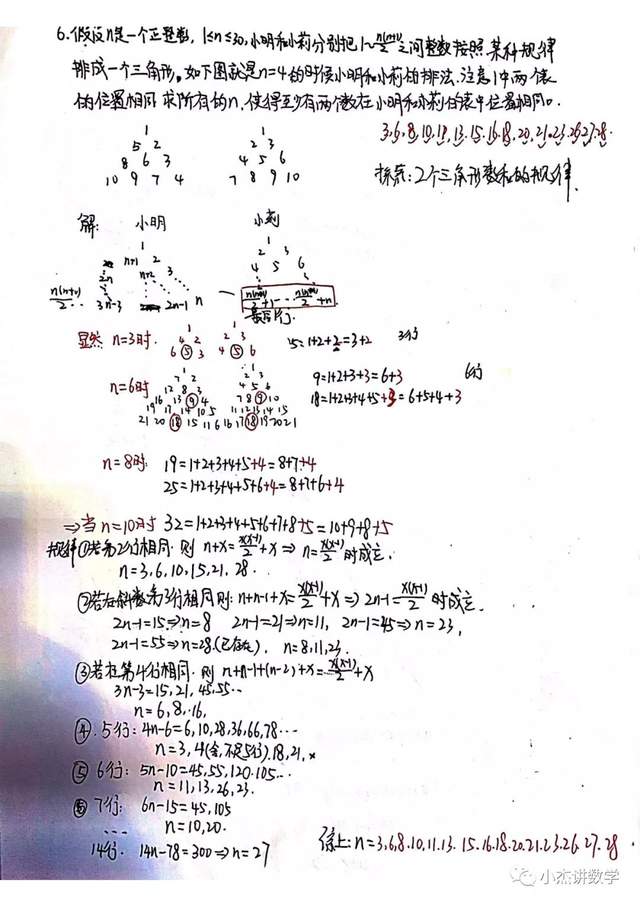 6.假设n是一个正整数,1≤n≤30,小明和小莉分别把1~n(n+1)/2之间整数按照某种规律
排成一个三角形。如下图就是n=4的时候小明和小莉的排法.注意1在两个表
的位置相同 求所有的n,使得至少有两个数在小明和小莉的表中位置相同。
3,6,8,10,11,13.15.16.18,20,21.23.26.27.28.
1 1
5 2 2 3
8 6 3 4 5 6
10 9 7 4 7 8 9 10
探索:2个三角形数和的规律.
解: 小明 小莉
1 1
n+1 2 2 3
2n n+2 3 4 5 6
n(n+1)/2 ... 3n-3 2n-1 n n(n-1)/2+1 ... n(n-1)/2+n
最后行.
显然 n=3时. 1 1
4 2 2 3
6 5 3 4 5 6
5=1+2+2=3+2 3行
n=6时 1 1
7 2 2 3
12 8 3 4 5 6
16 13 9 4 7 8 9 10
19 17 14 10 5 11 12 13 14 15
21 20 18 15 11 6 16 17 18 19 20 21
9=1+2+3+3=6+3 6行
18=1+2+3+4+5+3=6+5+4+3
n=8时. 19=1+2+3+4+5+4=8+7+4
25=1+2+3+4+5+6+4=8+7+6+4
⇒当n=10时 32=1+2+3+4+5+6+7+8+5=10+9+8+5
规律①若第2行相同.则 n+x=x(x+1)/2+x ⇒ n=x(x+1)/2 时成立.
n=3,6,10,15,21,28.
②若右斜数第3行相同则:n+n-1+x=x(x+1)/2+x ⇒ 2n-1=x(x+1)/2 时成立.
2n-1=15⇒n=8 2n-1=21⇒n=11, 2n-1=45⇒n=23,
2n-1=55⇒n=28.(已存在), n=8,11,23.
③若在第4行相同.则 n+n-1+(n-2)+x=x(x+1)/2+x
3n-3=15,21,45,55…
n=6,8,16,
④.5行:4n-6=6,10,28,36,66,78…
n=3,4(舍,不足5行).18,21,×
⑤ 6行: 5n-10=45,55,120.105…
n=11,13,26,23.
⑥ 7行: 6n-15=45,105
… n=10,20.
14行. 14n-78=300⇒n=27
综上:n=3,6,8.10,11.13. 15.16.18.20.21.23.26.27.28.
小杰讲数学